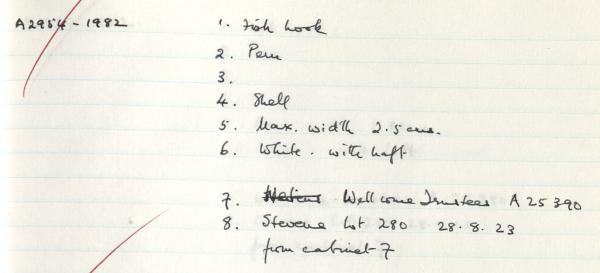 A2954-1982 1. Fish hook
2. Peru
3.
4. Shell
5. Max. width 2.5 cms.
6. White. with haft
7. Wellcome Trustees A 25390
8. Stevens Lot 280 28.8.23
from cabinet 7